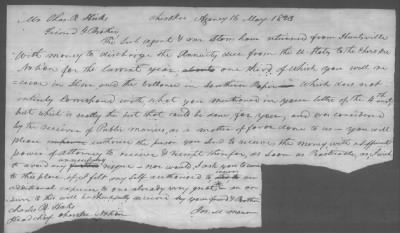 Mr Chas R Hicks Cherokee Agency 16 May 1823
Friend & Brother
The Sub agent & our Store have returned from Huntsville
With money to discharge the Annuity due from the U States to the Cherokee
Nation for the Current year, one third of which you will
receive in Silver and the ballance in Southern Paper which does not
entirely correspond with what you mentioned in your letter of the 4th inst
but which is really the best that could be done for you, and was considered
by the receiver of Public monies, as a matter of favor done to us you will
please authorise the person you send to receive the money with a sufficient
power of attorney to receive & receipt therefor, as soon as Practicable, as I wish
to avoid any unnecessary expense nor would I ask you to come
to this place, if I felt my self authorised to
additional expense to one already very great an
swer to this will be thankfully received by your friend & Brother
Charles R Hicks Jos. McMinn
Head chief Cherokee Nation